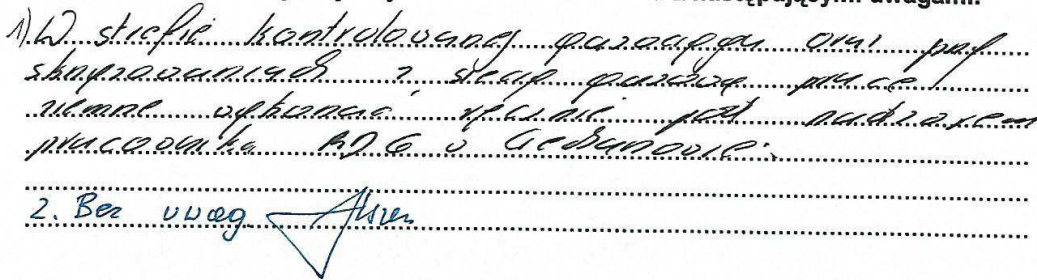 następującymi uwagami:
1) W strefie kontrolowanej gazociągu oraz przy
skrzyżowaniach z siecią gazową prace
ziemne wykonać ręcznie pod nadzorem
pracownika RDG w Ciechanowie.
2. Bez uwag